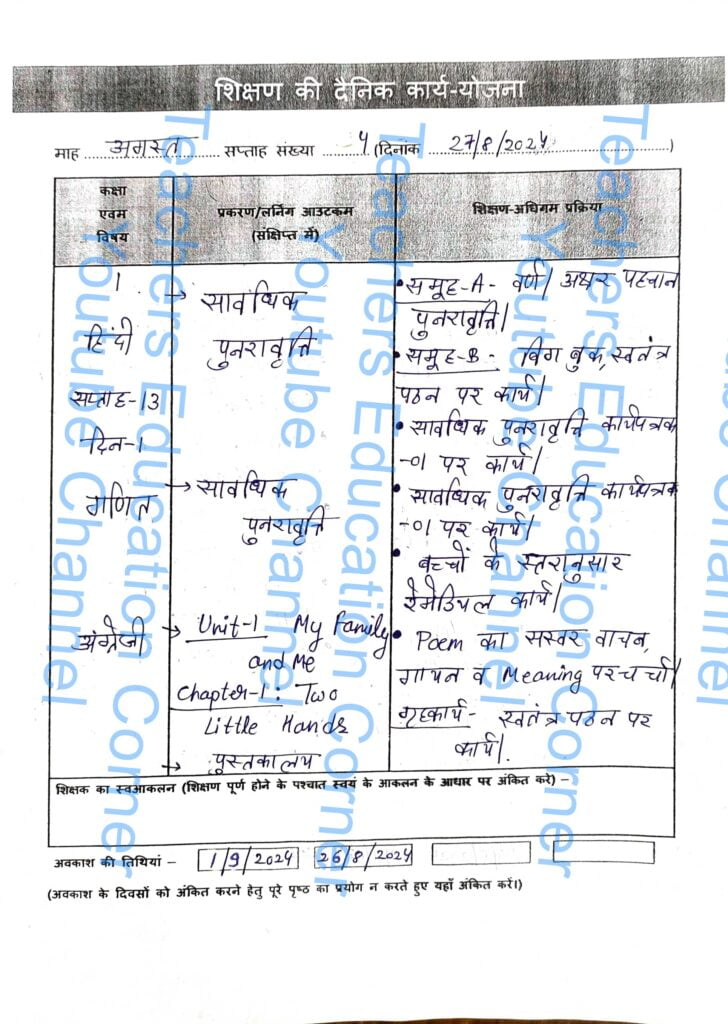 शिक्षण की दैनिक कार्य-योजना
माह अगस्त सप्ताह संख्या 4 (दिनांक 27/8/2024)
कक्षा
एवम
विषय
प्रकरण/लर्निंग आउटकम
(संक्षिप्त में)
शिक्षण-अधिगम प्रक्रिया
1
हिंदी
सप्ताह-13
दिन-1
→ सावधिक
पुनरावृत्ति
• समूह-A- वर्ण/अक्षर पहचान
पुनरावृत्ति।
• समूह-B- बिग बुक, स्वतंत्र
पठन पर कार्य।
• सावधिक पुनरावृत्ति कार्यपत्रक
-01 पर कार्य।
गणित
→ सावधिक
पुनरावृत्ति
• सावधिक पुनरावृत्ति कार्यपत्रक
-01 पर कार्य।
• बच्चों के स्तरानुसार
रेमेडियल कार्य।
अंग्रेजी
→ Unit-1 My Family
and Me
Chapter-1: Two
Little Hands
→ पुस्तकालय
• Poem का सस्वर वाचन,
गायन व Meaning पर चर्चा।
गृहकार्य- स्वतंत्र पठन पर
कार्य।
शिक्षक का स्वआकलन (शिक्षण पूर्ण होने के पश्चात स्वयं के आकलन के आधार पर अंकित करे) –
अवकाश की तिथियां – 1/9/2024 26/8/2024
(अवकाश के दिवसों को अंकित करने हेतु पूरे पृष्ठ का प्रयोग न करते हुए यहाँ अंकित करें।)
Teachers Education Corner
Youtube Channel
Teachers Education Corner
Youtube Channel
Teachers Education Corner
Youtube Channel